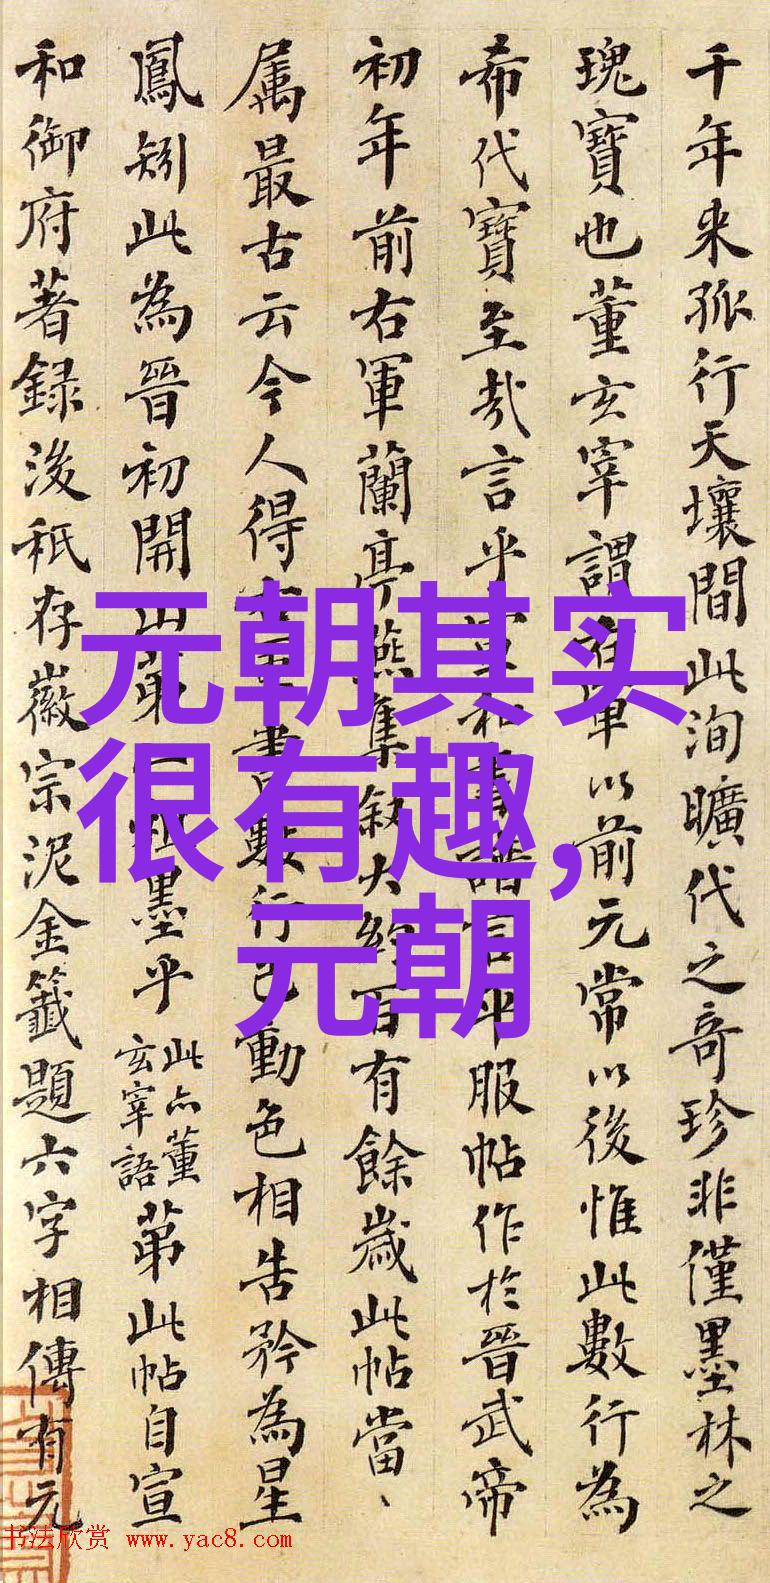 千年来孤行天壤間此洵曠代之奇珍非僅墨林之
瑰寶也董玄宰謂右軍以前元常以後惟此數行為
希代寶至哉言乎宣和書譜言平服帖作於晉武帝
初年前右軍蘭亭燕集叙大約百有餘歲此帖當、
属最古云今人得右軍書數行已動色相告矜為星
鳳矧此為晉初開山第一祖墨乎
此亦董
玄宰語
第此帖自宣
和御府著録後秖存徽宗泥金籤題六字相傳有元
元朝其实
很有趣,
元朝
书法欣赏 www.yac8.com